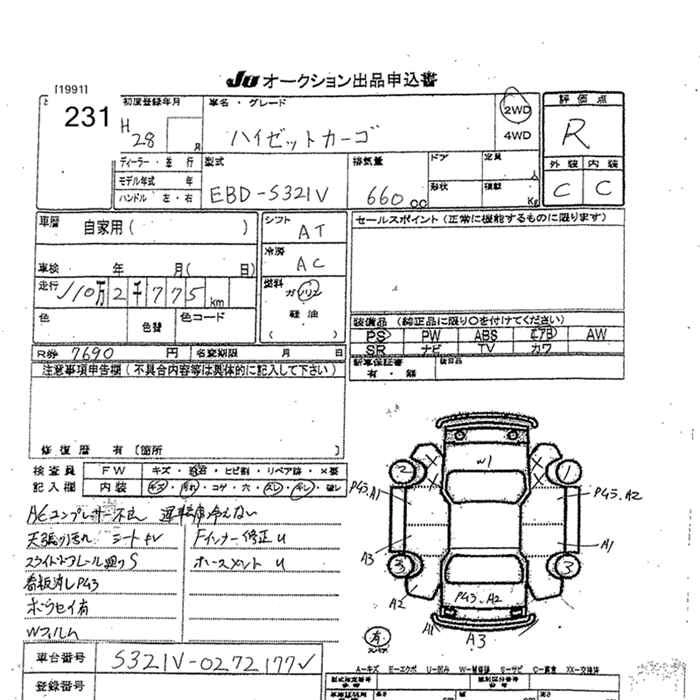 [1991]
JU オークション出品申込書
231
初度登録年月
車名・グレード
2WD
4WD
評価点
H
28
月
ハイゼットカーゴ
R
ディーラー・並行
型式
排気量
ドア
定員
人
外装 内装
モデル年式 年
EBD-S321V
660 cc
形状
積載
Kg
C C
ハンドル 左・右
車歴
自家用( )
シフト
AT
セールスポイント(正常に機能するものに限ります)
冷房
AC
車検 年 月( 日)
走行
110万2千775km
燃料
ガソリン
軽油
( )
色
色替
色コード
装備品 (純正品に限り○を付けてください)
PS PW ABS エアB AW
SR ナビ TV カワ
R券 7690 円
名変期限 月 日
有・無
注意事項申告欄(不具合内容等は具体的に記入して下さい)
修復歴 有[箇所 ]
検査員
FW
キズ・飛石・ヒビ割・リペア跡・×要
記入欄
内装
キズ・汚れ・コゲ・穴・スレ・キレ・破レ
ACコンプレッサー不良 運転席冷えない
天張り汚れ シートキレ
Fインナー修正u
スライドドアレール廻りS
ホースメント u
看板消しP43
ボウセイ有
Wフィルム
車台番号
S321V-0272177
登録番号
W1
2
1
P43.A1
P43.A2
A3
A1
3
3
A2
P43.A2
A1
A3
有
A-キズ E-エクボ U-凹み W-補修跡 S-サビ C-腐食 XX-交換済